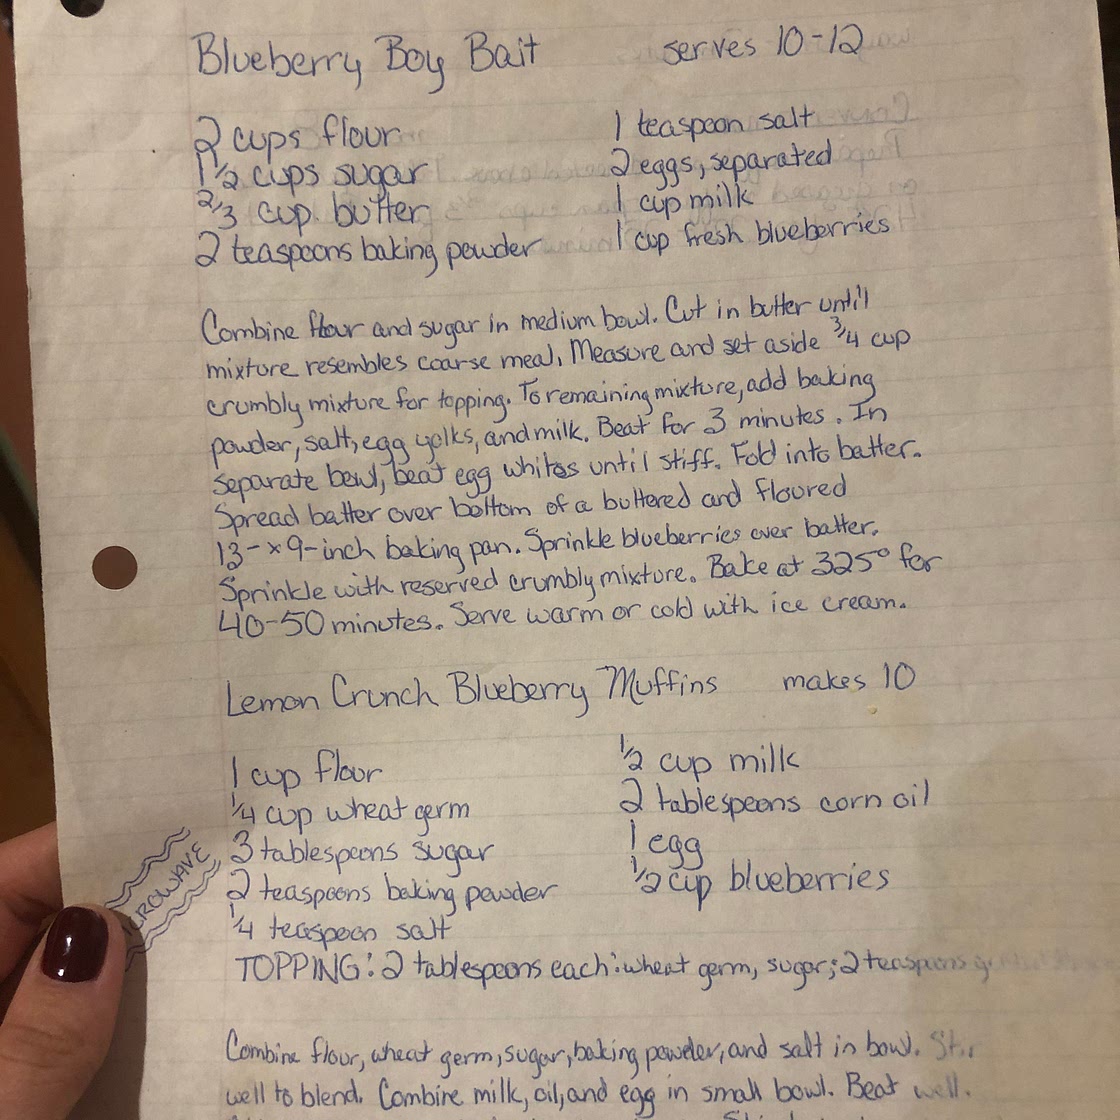 Blueberry Boy Bait serves 10-12
2 cups flour
1 1/2 cups sugar
2/3 cup butter
2 teaspoons baking powder
1 teaspoon salt
2 eggs, separated
1 cup milk
1 cup fresh blueberries
Combine flour and sugar in medium bowl. Cut in butter until
mixture resembles coarse meal. Measure and set aside 3/4 cup
crumbly mixture for topping. To remaining mixture, add baking
powder, salt, egg yolks, and milk. Beat for 3 minutes. In
separate bowl, beat egg whites until stiff. Fold into batter.
Spread batter over bottom of a buttered and floured
13-x9-inch baking pan. Sprinkle blueberries over batter.
Sprinkle with reserved crumbly mixture. Bake at 325° for
40-50 minutes. Serve warm or cold with ice cream.
Lemon Crunch Blueberry Muffins makes 10
1 cup flour
1/4 cup wheat germ
3 tablespoons sugar
2 teaspoons baking powder
1/4 teaspoon salt
1/2 cup milk
2 tablespoons corn oil
1 egg
1/2 cup blueberries
CROWAVE
TOPPING: 2 tablespoons each: wheat germ, sugar; 2 teaspoons
Combine flour, wheat germ, sugar, baking powder, and salt in bowl. Stir
well to blend. Combine milk, oil, and egg in small bowl. Beat well.